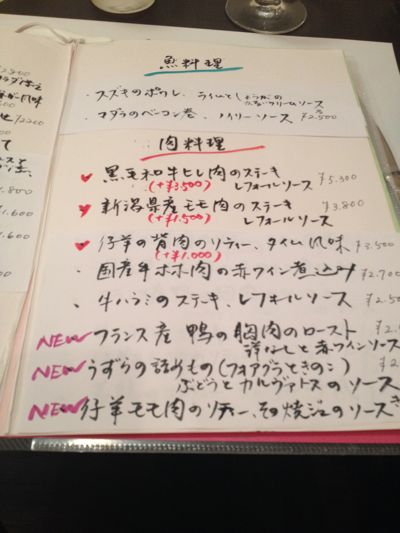 魚料理
・スズキのポワレ、ライムとしょうがの
クリームソース
・マダラのベーコン巻、ノイリーソース ¥2,500
肉料理
♥黒毛和牛ヒレ肉のステーキ
(+¥3,500) レフォールソース ¥5,300
♥新潟県産モモ肉のステーキ ¥3,800
(+¥1,500) レフォールソース
♥仔羊の背肉のソティー、タイム風味 ¥3,500
(+¥1,000)
・国産牛ホホ肉の赤ワイン煮込み ¥2,700
・牛ハラミのステーキ、レフォールソース
NEW フランス産 鴨の胸肉のロースト
洋なしと赤ワインソース
NEW うずらの詰めもの(フォアグラときのこ)
ぶどうとカルヴァドスのソース
NEW 仔羊モモ肉のソティー、その焼汁のソース